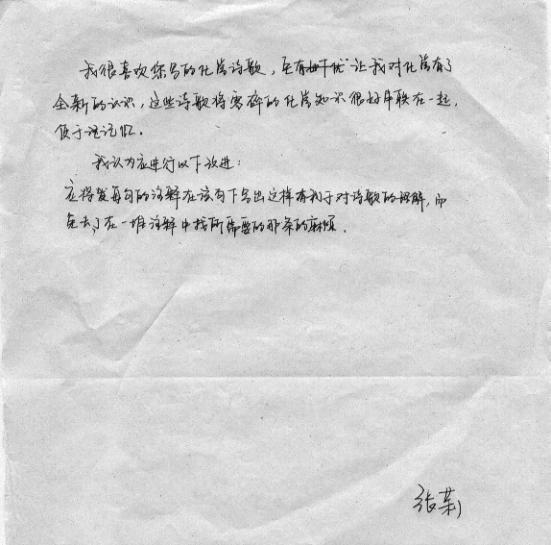 我很喜欢您写的化学诗歌，它有让我对化学有了
全新的认识，这些诗歌将零碎的化学知识很好串联在一起，
便于记忆。
我认为应进行以下改进：
应将每句的注解在该句下写出这样有利于对诗歌的理解，而
免去了在一堆注解中找所需要的那条的麻烦．
张莉